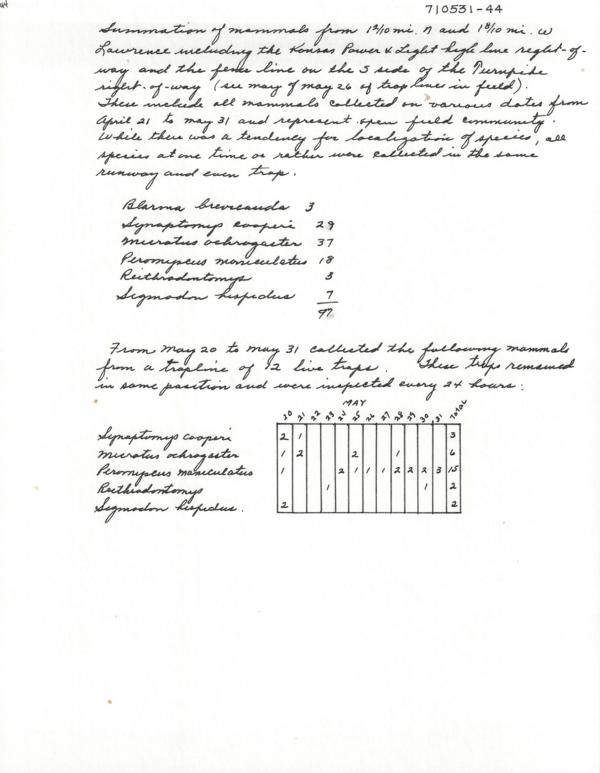 44
710531-44
Summation of mammals from 1 2/10 mi. N and 1 8/10 mi. W
Lawrence including the Kansas Power & Light high line right-of-
way and the fence line on the S side of the Turnpike
right-of-way (see map of May 26 of trap lines in field).
These include all mammals collected on various dates from
April 21 to May 31 and represent open field community.
While there was a tendency for localization of species, all
species at one time or rather were collected in the same
runway and even trap.
Blarina brevicauda 3
Synaptomys cooperi 29
Microtus ochrogaster 37
Peromyscus maniculatus 18
Reithrodontomys 3
Sigmodon hispidus 7
97
From May 20 to May 31 collected the following mammals
from a trapline of 12 live traps. These traps remained
in same position and were inspected every 24 hours:
MAY
20 21 22 23 24 25 26 27 28 29 30 31 Total
Synaptomys cooperi 2 1 3
Microtus ochrogaster 1 2 2 1 6
Peromyscus maniculatus 1 2 1 1 1 2 2 2 3 15
Reithrodontomys 1 1 2
Sigmodon hispidus. 2 2